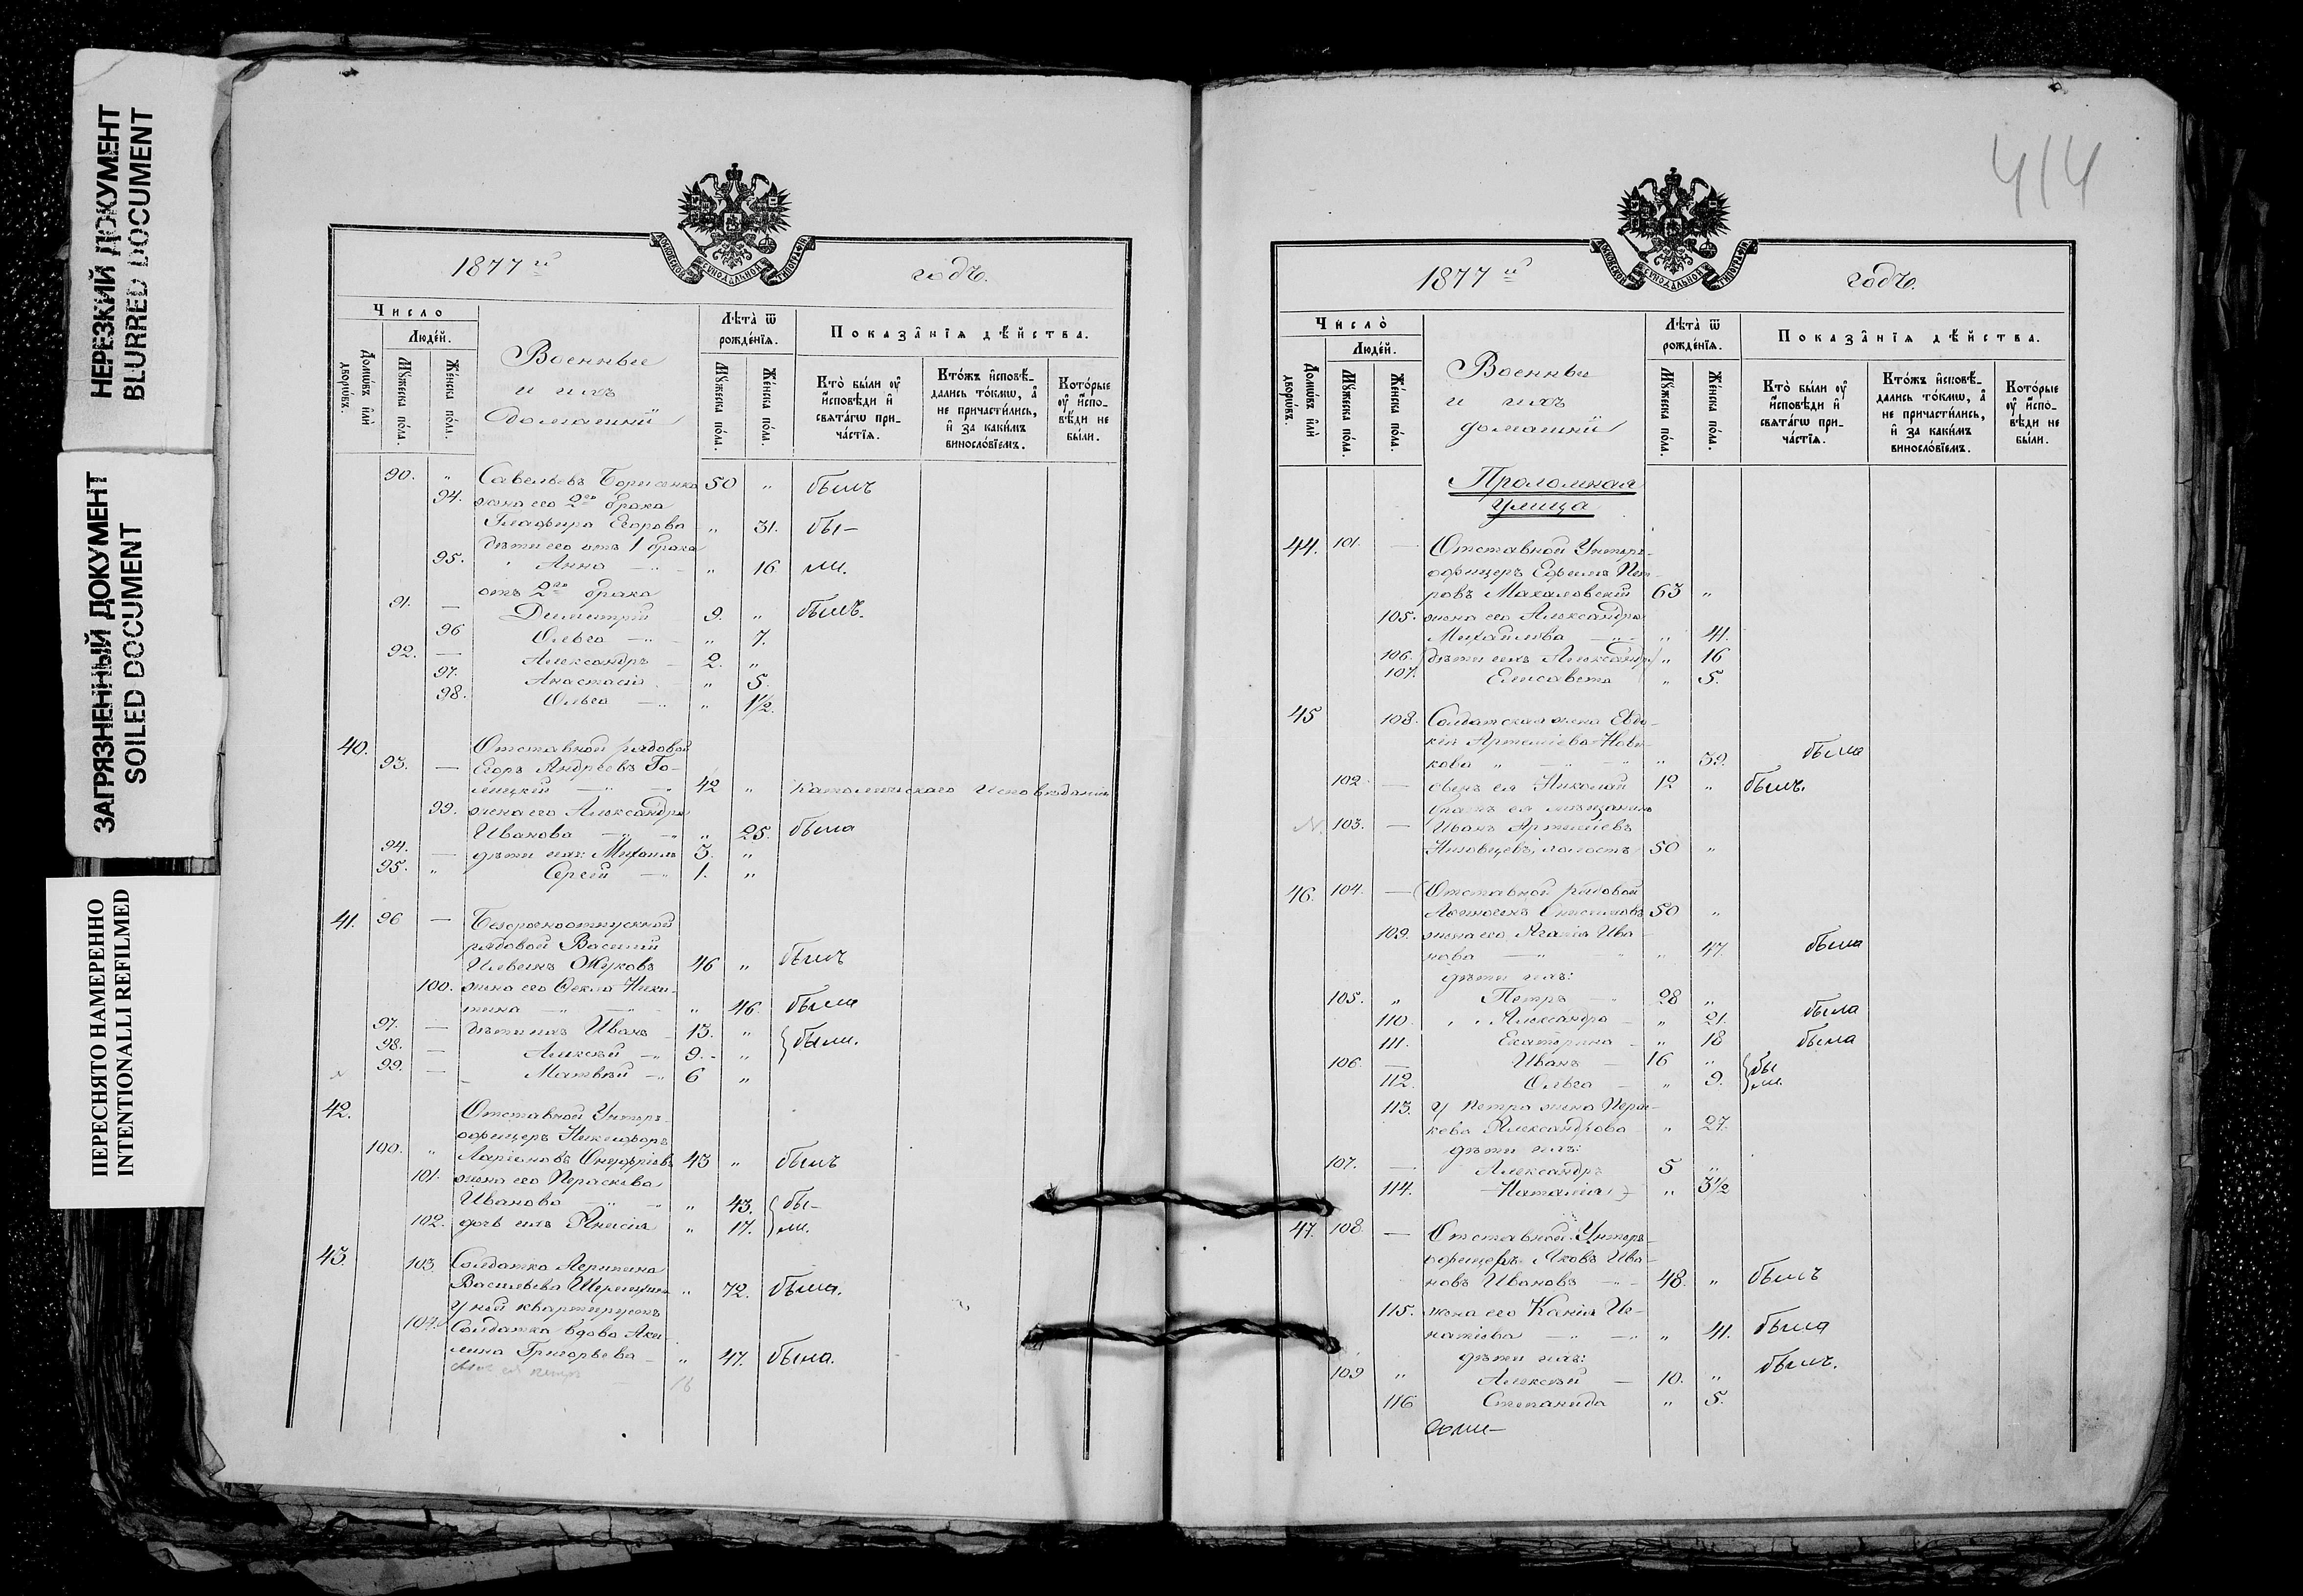 НЕРЕЗКИЙ ДОКУМЕНТ
BLURRED DOCUMENT
ЗАГРЯЗНЕННЫЙ ДОКУМЕНТ
SOILED DOCUMENT
ПЕРЕСНЯТО НАМЕРЕННО
INTENTIONALLI REFILMED
МОСКОВСКОЙ СУНОДАЛЬНОЙ ТИПОГРАФІИ
1877 й годъ.
Число
Людей.
Домѡвъ или дворѡвъ.
Мꙋжеска пола.
Женска пола.
Военные
и ихъ
домашніи
Лѣта ѿ рожденїѧ.
Мꙋжеска пола.
Женска пола.
Показанїѧ дѣйства.
Кто были оу҆
исповѣди и
свѧтагѡ при-
частїѧ.
Ктожъ исповѣ-
дались токмѡ, а
не причастились,
и за какимъ
винословїемъ.
Которые
оу҆ испо-
вѣди не
были.
90. „ Савельевъ Борисенко 50 „ былъ
94. жена его 2го брака
Глафира Егорова „ 31. бы-
дѣти его отъ 1 брака
95. Анна „ 16 ли.
отъ 2го брака
91. — Димитрій 9. „ былъ.
96 Ольга — „ 7.
92. — Александръ 2. „
97. Анастасія „ 5.
98. Ольга — „ 1½.
40. Отставной рядовой
93. — Егоръ Андреевъ Го-
лицкій 42 „ Католическаго Исповѣданія
99. жена его Александра
Иванова „ 25. была
94. — дѣти ихъ: Михаилъ 3. „
95. „ Сергей 1. „
41. 96 — Безсрочноотпускной
рядовой Василій
Ильинъ Жуковъ 46 „ былъ
100. жена его Фекла Ники-
тина „ 46. была
97. — дѣти ихъ Иванъ 13. „
98. — Алексѣй 9. „ были.
99. — Матвѣй 6 „
42. Отставной Унтеръ
офицеръ Никифоръ
100. „ Ларіоновъ Онуфріевъ 43 „ былъ
101. жена его Параскева
Иванова „ 43. бы-
102. дочь ихъ Анисія „ 17. ли.
43. 103 Солдатка Агрипина
Васильева „ 72. была.
У ней квартируетъ
104. Солдатка вдова Аку-
лина Григорьева „ 47. была.
16
414
МОСКОВСКОЙ СУНОДАЛЬНОЙ ТИПОГРАФІИ
1877 й годъ.
Число
Людей.
Домѡвъ или дворѡвъ.
Мꙋжеска пола.
Женска пола.
Военные
и ихъ
домашніи
Лѣта ѿ рожденїѧ.
Мꙋжеска пола.
Женска пола.
Показанїѧ дѣйства.
Кто были оу҆
исповѣди и
свѧтагѡ при-
частїѧ.
Ктожъ исповѣ-
дались токмѡ, а
не причастились,
и за какимъ
винословїемъ.
Которые
оу҆ испо-
вѣди не
были.
Проломная
улица
44. 101. — Отставной Унтеръ-
офицеръ Ефимъ Пет-
ровъ Махаловскій 63 „
105. жена его Александра
Михайлова „ 41.
106. дѣти ихъ Александра „ 16
107. Елисавета „ 5.
45 108. Солдатская жена Евдо-
кія Артеміева Нови-
кова „ „ 39. была
102 — сынъ ея Николай 12 „ былъ.
братъ ея мѣщанинъ
103. — Иванъ Артеміевъ
холостъ 50 „
46. 104. — Отставной рядовой
50 „
109. жена его Агафія Ива-
нова „ 47. была
дѣти ихъ:
105. „ Петръ 28 „
110. Александра „ 21. была
111. Екатерина „ 18 была
106. — Иванъ 16 „ бы
112. Ольга „ 9. ли.
113. у Петра жена Парас-
кева Александрова „ 27.
дѣти ихъ:
107. — Александръ 5 „
114. Наталія „ 3½
47. 108 — Отставной Унтеръ-
офицеръ Яковъ Ива-
новъ Ивановъ 48. „ былъ
115. жена его Ксенія Иг-
натіева „ 41. была
дѣти ихъ:
109 „ Алексѣй 10. „ былъ.
116 Степанида „ 5.